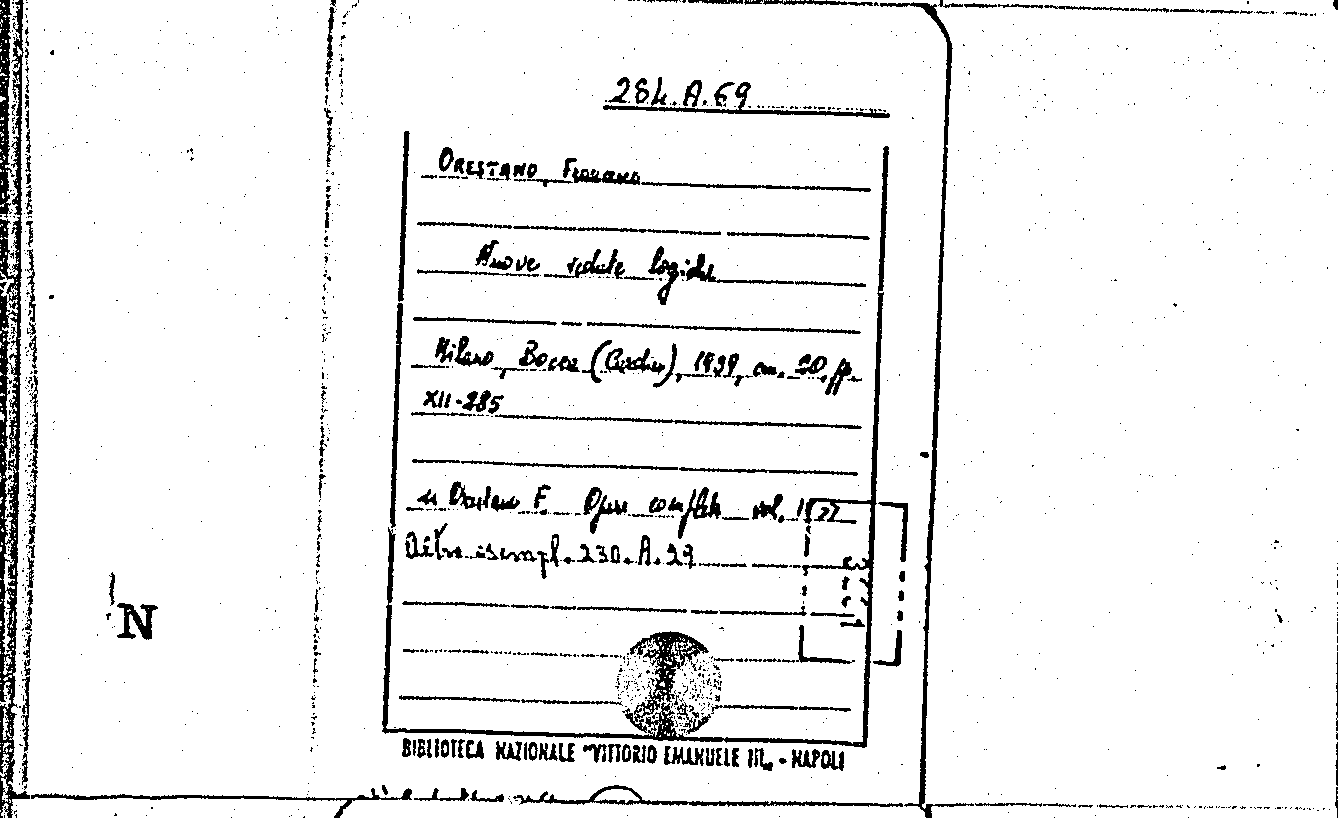 284.A.69
ORESTANO, Francesco
Nuove vedute logiche
Milano, Bocca (Cardin), 1939, cm. 20, pp.
XII-285
in Orestano F. Opere complete vol.
Altro esempl. 230.A.29
N
BIBLIOTECA NAZIONALE "VITTORIO EMANUELE III„ - NAPOLI